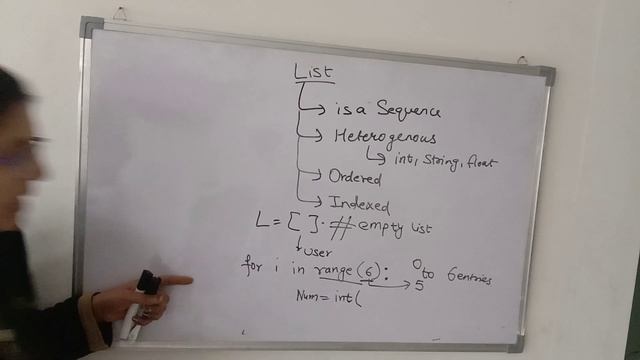 List
→ is a Sequence
→ Heterogenous
→ int, String, float
→ Ordered
→ Indexed
L = [ ]. # empty list
user
for i in range(6): → 0 to 5 6 entries
Num = int(